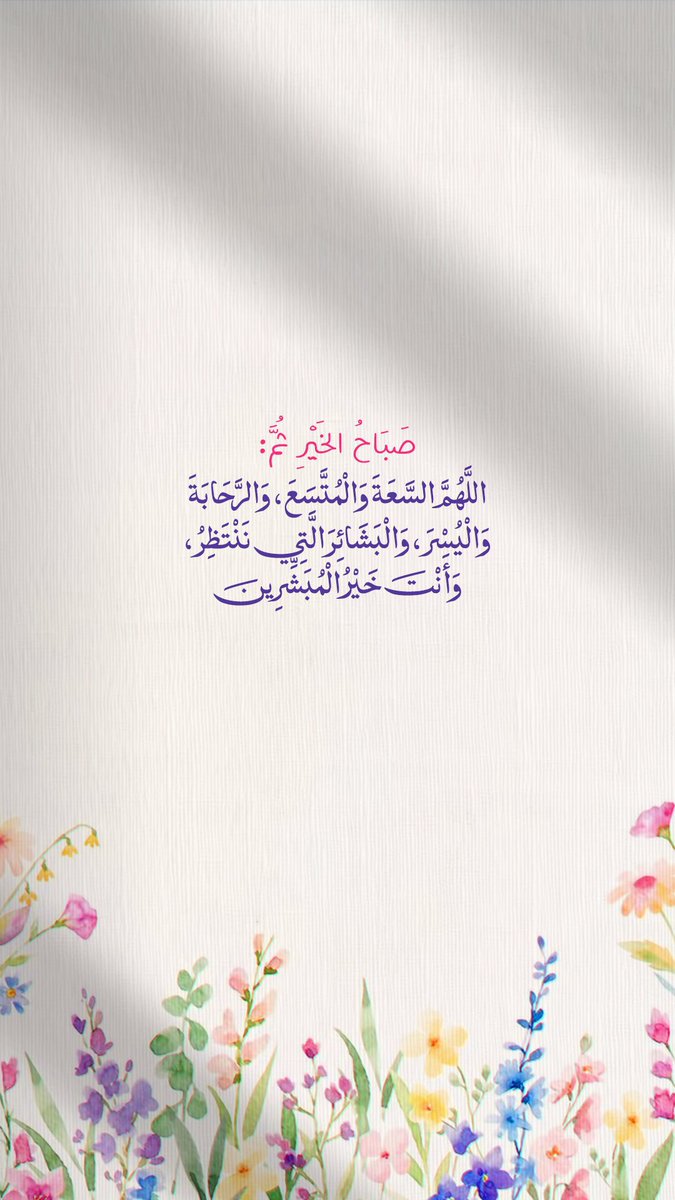 صَبَاحُ الخَيْرِ ثُمَّ:
اللَّهُمَّ السَّعَةَ وَالْمُتَّسَعَ، وَالرَّحَابَةَ
وَالْيُسْرَ، وَالْبَشَائِرَ الَّتِي نَنْتَظِرُ،
وَأَنْتَ خَيْرُ الْمُبَشِّرِينَ